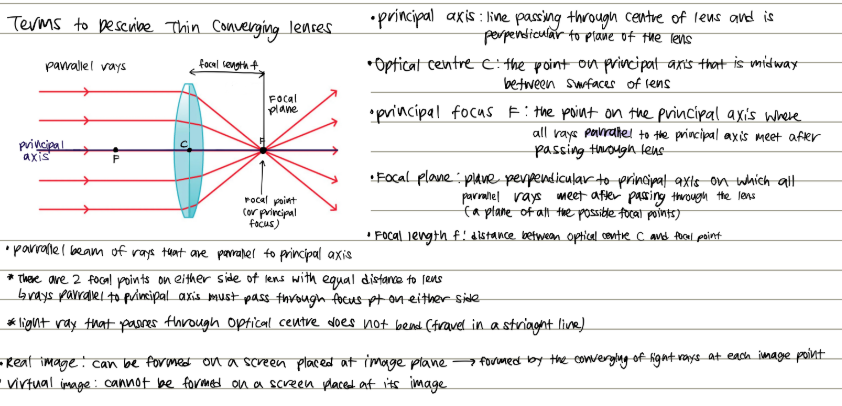 Terms to Describe Thin Converging lenses
parrallel rays
focal length f
Focal plane
principal axis
F
C
F
Focal point (or principal focus)
• principal axis : line passing through centre of lens and is
perpendicular to plane of the lens
• Optical centre C : the point on principal axis that is midway
between surfaces of lens
• principal focus F : the point on the principal axis where
all rays parrallel to the principal axis meet after
passing through lens
• Focal plane : plane perpendicular to principal axis on which all
parrallel rays meet after passing through the lens
(a plane of all the possible focal points)
• Focal length f : distance between optical centre C and focal point
• parrallel beam of rays that are parrallel to principal axis
* There are 2 focal points on either side of lens with equal distance to lens
↳ rays parrallel to principal axis must pass through focus pt on either side
* light ray that passes through optical centre does not bend (travel in a striaght line)
• Real image : can be formed on a screen placed at image plane → formed by the converging of light rays at each image point
• virtual image : cannot be formed on a screen placed at its image